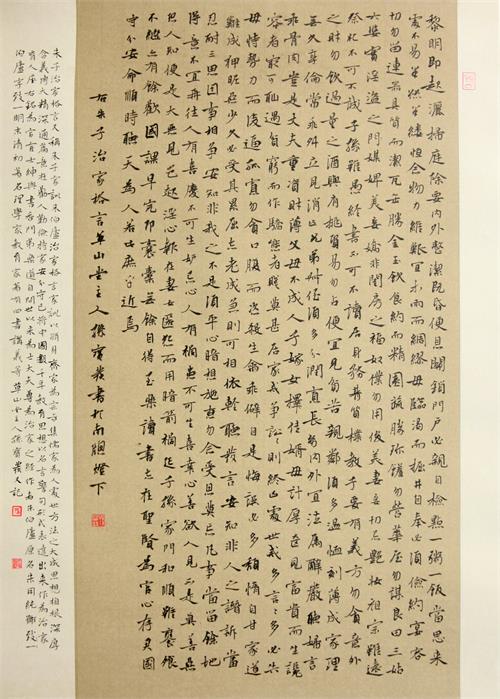 黎明即起灑掃庭除要內外整潔既昏便息關鎖門戶必親自檢點一粥一飯當思來
處不易半絲半縷恒念物力維艱宜未雨而綢繆毋臨渴而掘井自奉必須儉約宴客
切勿留連器具質而潔瓦缶勝金玉飲食約而精園蔬勝珍饈勿營華屋勿謀良田三姑
六婆實淫盜之門媒婢美妾嬌非閨房之福奴僕勿用俊美妻妾切忌艷妝祖宗雖遠
祭祀不可不誠子孫雖愚經書不可不讀居身務期質樸教子要有義方勿貪意外
之財勿飲過量之酒與肩挑貿易勿占便宜見貧苦親鄰須多溫恤刻薄成家理
無久享倫常乖舛立見消亡兄弟叔侄須多分潤寡長幼內外宜法屬辭嚴聽婦言
乖骨肉豈是丈夫重資財薄父母不成人子嫁女擇佳婿毋計厚奩見富貴而生諂
容者最可恥遇貧窮而作驕態者賤莫甚居家戒爭訟訟則終凶處世戒多言言多必失
毋恃勢力而凌逼孤寡勿貪口腹而恣殺生禽乖僻自是悔誤必多頹惰自甘家道
難成狎昵惡少久必受其累屈志老成急則可相依輕聽發言安知非人之譖訴當
忍耐三思因事相爭安知非我之不是須平心暗想施惠勿念受恩莫忘凡事當留餘地
得意不宜再往人有喜慶不可生妒忌心人有禍患不可生喜幸心善欲人見不是真善惡
恐人知便是大惡見色起淫心報在妻女匿怨而用暗箭禍延子孫家門和順雖饔飧
不繼亦有餘歡國課早完即囊橐無餘自得至樂讀書志在聖賢為官心存君國
守分安命順時聽天為人若此庶乎近焉
右朱子治家格言草山堂主人孫寶發書於南窗燈下
朱子治家格言又稱朱子家訓朱伯廬治家格言家訓以修身齊家為宗旨集儒家為人處世方法之大成思想植根深厚
含義博大精深通篇意在勸人勤儉持家安分守己將中國數千年教育思想以名言警句形式表達出來作為治家
自問世以來為士大夫尊為治家之經作者朱伯廬原名朱用純
字致一明末清初著名理學家教育家著有四書講義等草山堂主人孫寶發又記